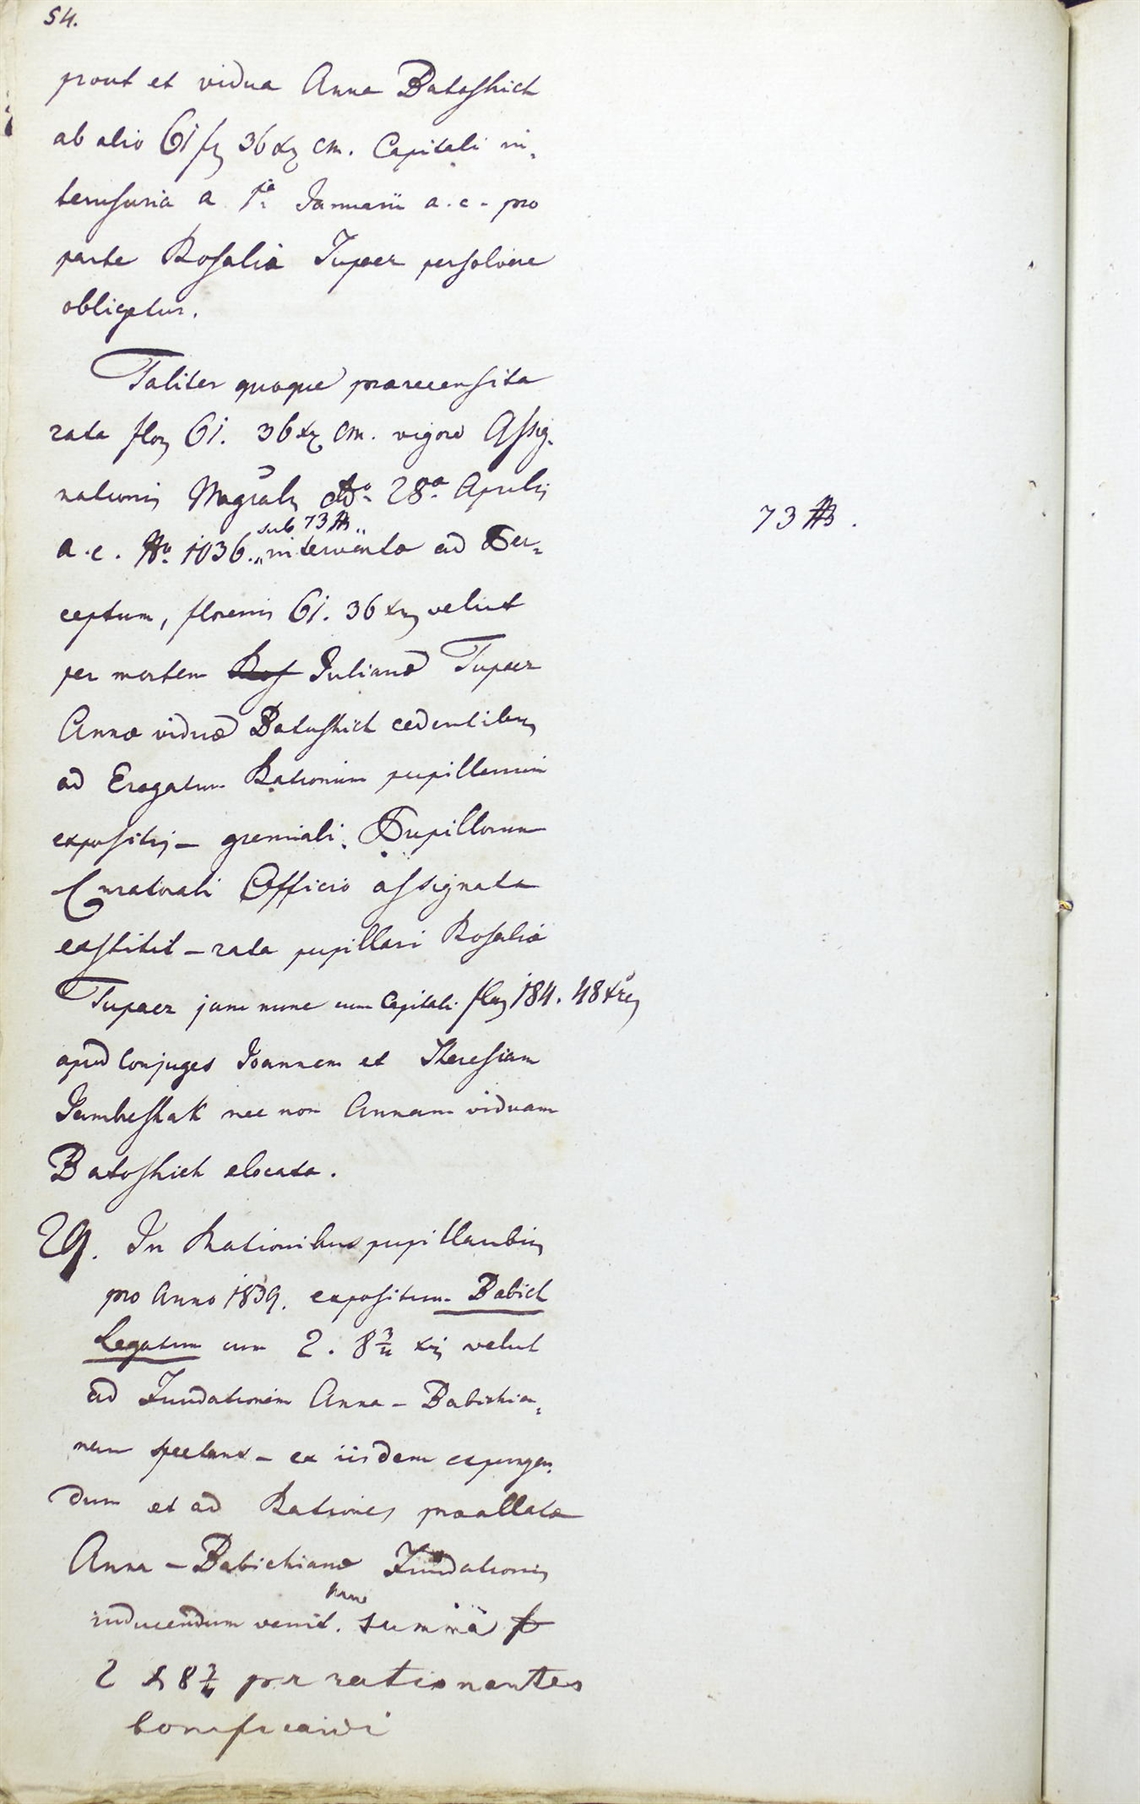 54.
prout et vidua Anna Batoshich
ab alio 61 fl 36 xr CM. Capitali in-
terusuria a 1a Januarii a. c. pro
parte Rosalia Tupaer persolvere
obligetur.
Taliter quoque praerecensita
rata flor 61. 36 xr CM. vigore Assig-
nationis Magralis ddo 28a Aprilis
a. c. No. 1036. „sub 73 „ interventa ad Per-
73
ceptum, florenis 61. 36 xris velut
per mortem Ros Julianae Tupaer
Annae viduae Batoshich cedentibus
ad Erogatum Rationum pupillarium
expositis – gremiali Pupillorum
Curatorali Officio assignata
exstitit – rata pupillari Rosalia
Tupaer jam nunc cum Capitali flor 184. 48 xris
apud Conjuges Joannem et Theresiam
Jambreshak nec non Annam viduam
Batoshich elocata.
29. In Rationibus pupillaribus
pro Anno 1839. expositum Babich
Legatum cum 2. 8 3/4 xris velut
ad Fundationem Anna – Babichia-
nam spectans – ex iisdem expungen-
dum et ad Rationes praallatae
Anna – Babichianae Fundationis
inducendum venit. hanc summa f
2 8 3/4 per rationantes
bonificandi